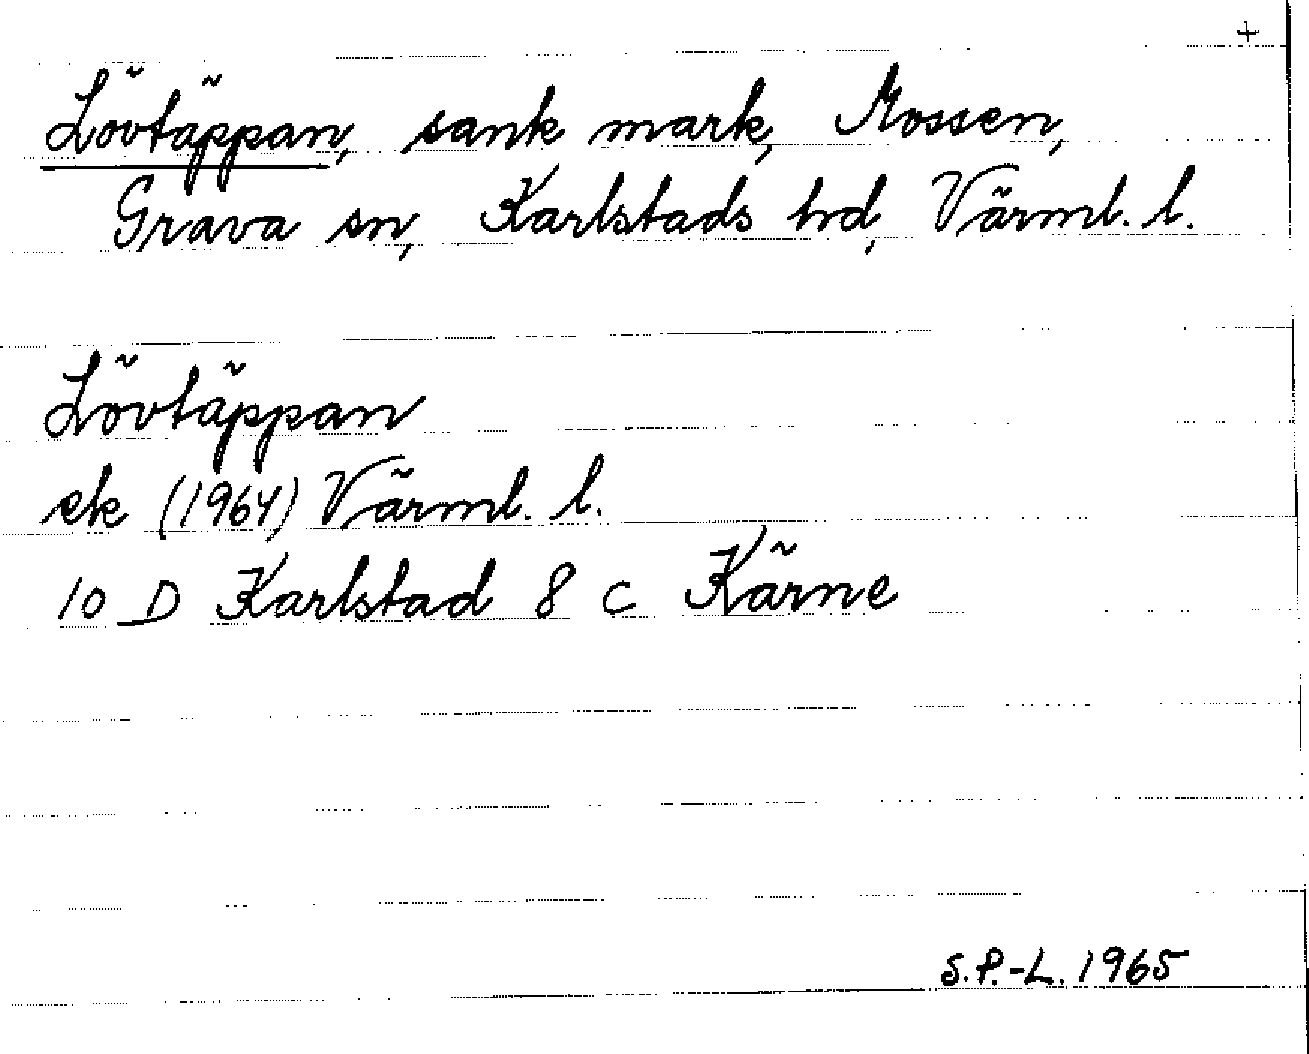 +
Lövtäppan, sank mark, Mossen,
Grava sn, Karlstads hd, Värml. l.
Lövtäppan
ek (1964) Värml. l.
10 D Karlstad 8 c Kärne
S.P.-L. 1965